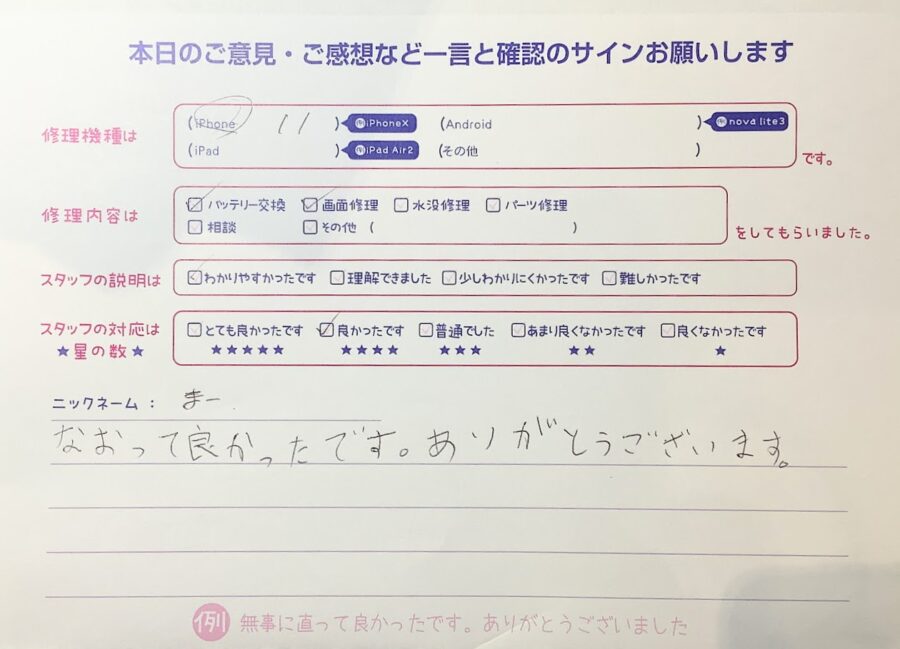 本日のご意見・ご感想など一言と確認のサインお願いします
修理機種は
(iPhone 11 ) 例iPhoneX (Android ) 例nova lite3
(iPad ) 例iPad Air2 (その他 ) です。
修理内容は
☑バッテリー交換 ☑画面修理 □水没修理 □パーツ修理
□相談 □その他 ( ) をしてもらいました。
スタッフの説明は ☑わかりやすかったです □理解できました □少しわかりにくかったです □難しかったです
スタッフの対応は □とても良かったです ☑良かったです □普通でした □あまり良くなかったです □良くなかったです
★星の数★ ★★★★★ ★★★★ ★★★ ★★ ★
ニックネーム： まー
なおって良かったです。ありがとうございます。
例 無事に直って良かったです。ありがとうございました